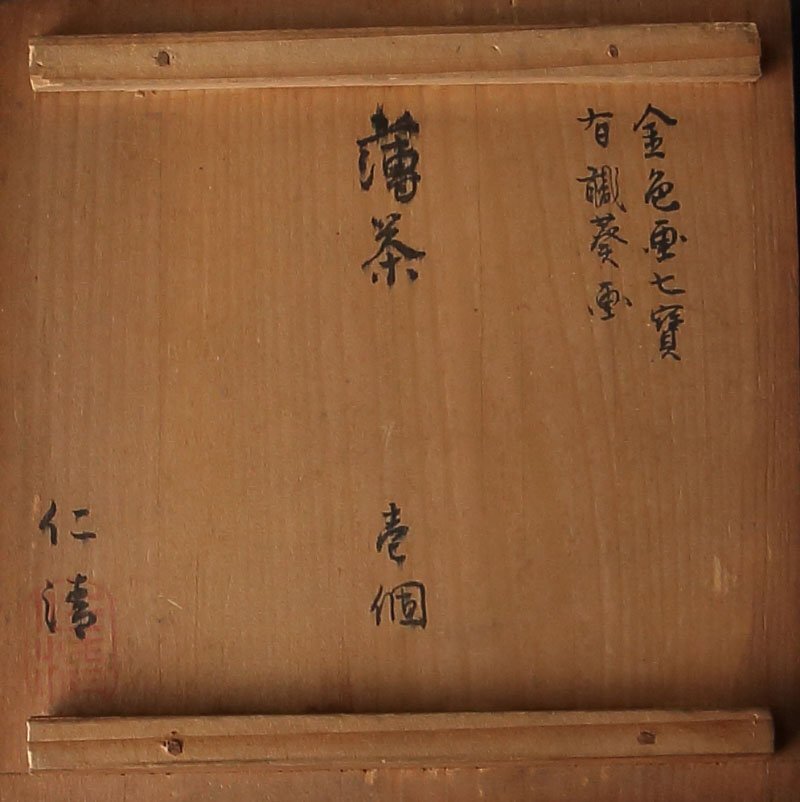 金色画七寳
有職葵画
薄茶 壱個
仁清